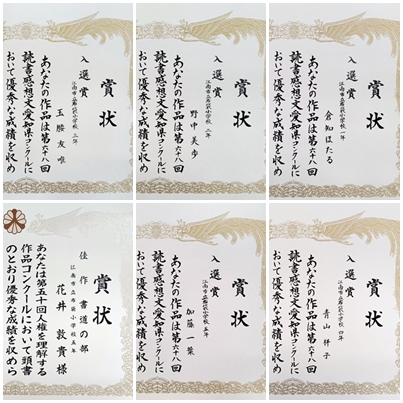 賞状
入選賞
江南市立布袋小学校 三年
玉腰友唯
あなたの作品は第六十八回
読書感想文愛知県コンクールに
おいて優秀な成績を収め
賞状
入選賞
江南市立布袋小学校 二年
野中美歩
あなたの作品は第六十八回
読書感想文愛知県コンクールに
おいて優秀な成績を収め
賞状
入選賞
江南市立布袋小学校 一年
倉知ほたる
あなたの作品は第六十八回
読書感想文愛知県コンクールに
おいて優秀な成績を収め
賞状
佳作 書道の部
江南市立布袋小学校五年
花井敦貴様
あなたは第五十回人権を理解する
作品コンクールにおいて頭書
のとおり優秀な成績を収めら
賞状
入選賞
江南市立布袋小学校 五年
加藤一葉
あなたの作品は第六十八回
読書感想文愛知県コンクールに
おいて優秀な成績を収め
賞状
入選賞
江南市立布袋小学校 四年
青山祥子
あなたの作品は第六十八回
読書感想文愛知県コンクールに
おいて優秀な成績を収め